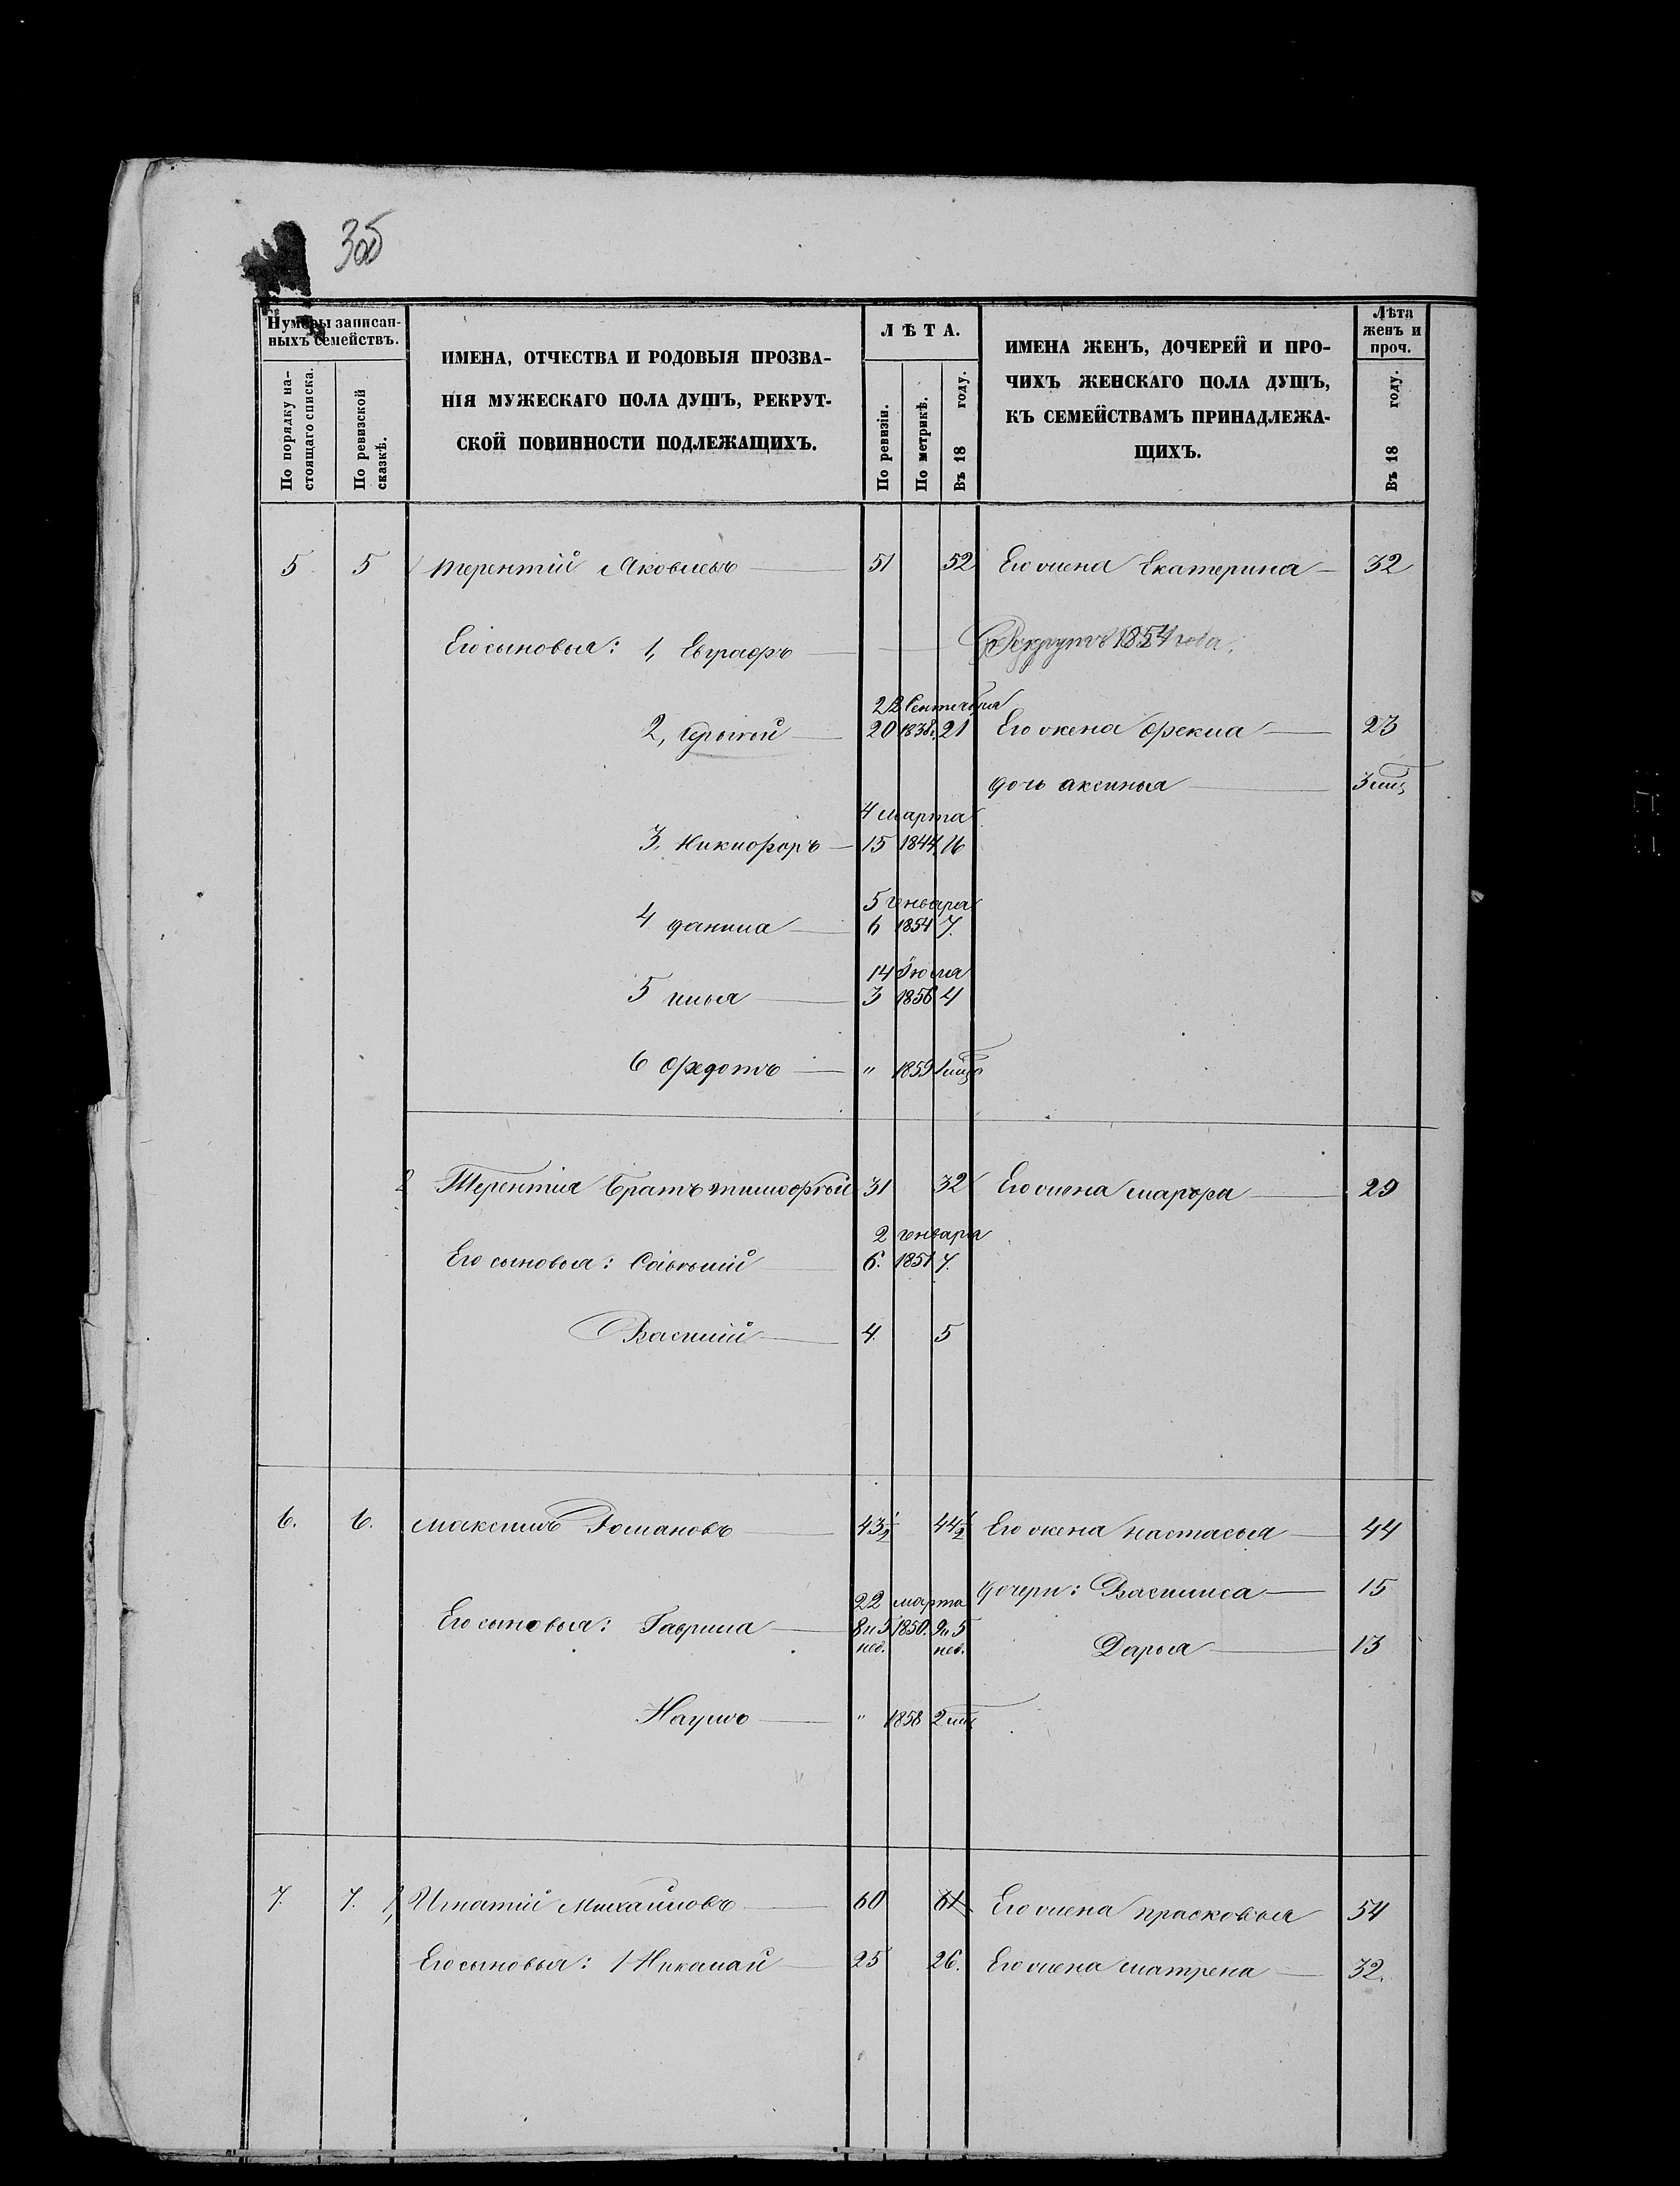 Нумеры записан-
ныхъ семействъ.
По порядку на-
стоящаго списка.
По ревизской
сказкѣ.
ИМЕНА, ОТЧЕСТВА И РОДОВЫЯ ПРОЗВА-
НІЯ МУЖЕСКАГО ПОЛА ДУШЪ, РЕКРУТ-
СКОЙ ПОВИННОСТИ ПОДЛЕЖАЩИХЪ.
ЛѢТА.
По ревизіи.
По метрикѣ.
Въ 18 году.
ИМЕНА ЖЕНЪ, ДОЧЕРЕЙ И ПРО-
ЧИХЪ ЖЕНСКАГО ПОЛА ДУШЪ,
КЪ СЕМЕЙСТВАМЪ ПРИНАДЛЕЖА-
ЩИХЪ.
Лѣта
женъ и
проч.
Въ 18 году.
5 5 Терентій Яковлевъ 51 52 Его жена Екатерина 32
Его сыновья: 1, Евграфъ Рекрутъ 1854 года.
22 Сентября
2, 20 1838. 21 Его жена Фекла 23
дочь Аксинья 3 мц,
4 Марта
3, Никифоръ 15 1844. 16
5 Генваря
4 Данила 6 1854 7.
14 Іюля
5 Илья 3 1856 4
6 Федотъ " 1859 1 мцъ
2 Терентія Братъ Тимофей 31 32 Его жена Марфа 29
2 Генваря
Его сыновья: 6. 1851 7.
Василій 4. 5
6. 6. Максимъ Романовъ 43½ 44½ Его жена Настасья 44
Дочери: Василиса 15
22 Марта
Его сыновья: Гаврила 8 и 5 1850. 9 и 5
нед. нед.
Дарья 13
Наумъ " 1858 2 мц
7. 7. 1, Игнатій Михайловъ 60 61 Его жена Прасковья 54
Его сыновья: 1 Николай 25 26. Его жена Матрена 32.